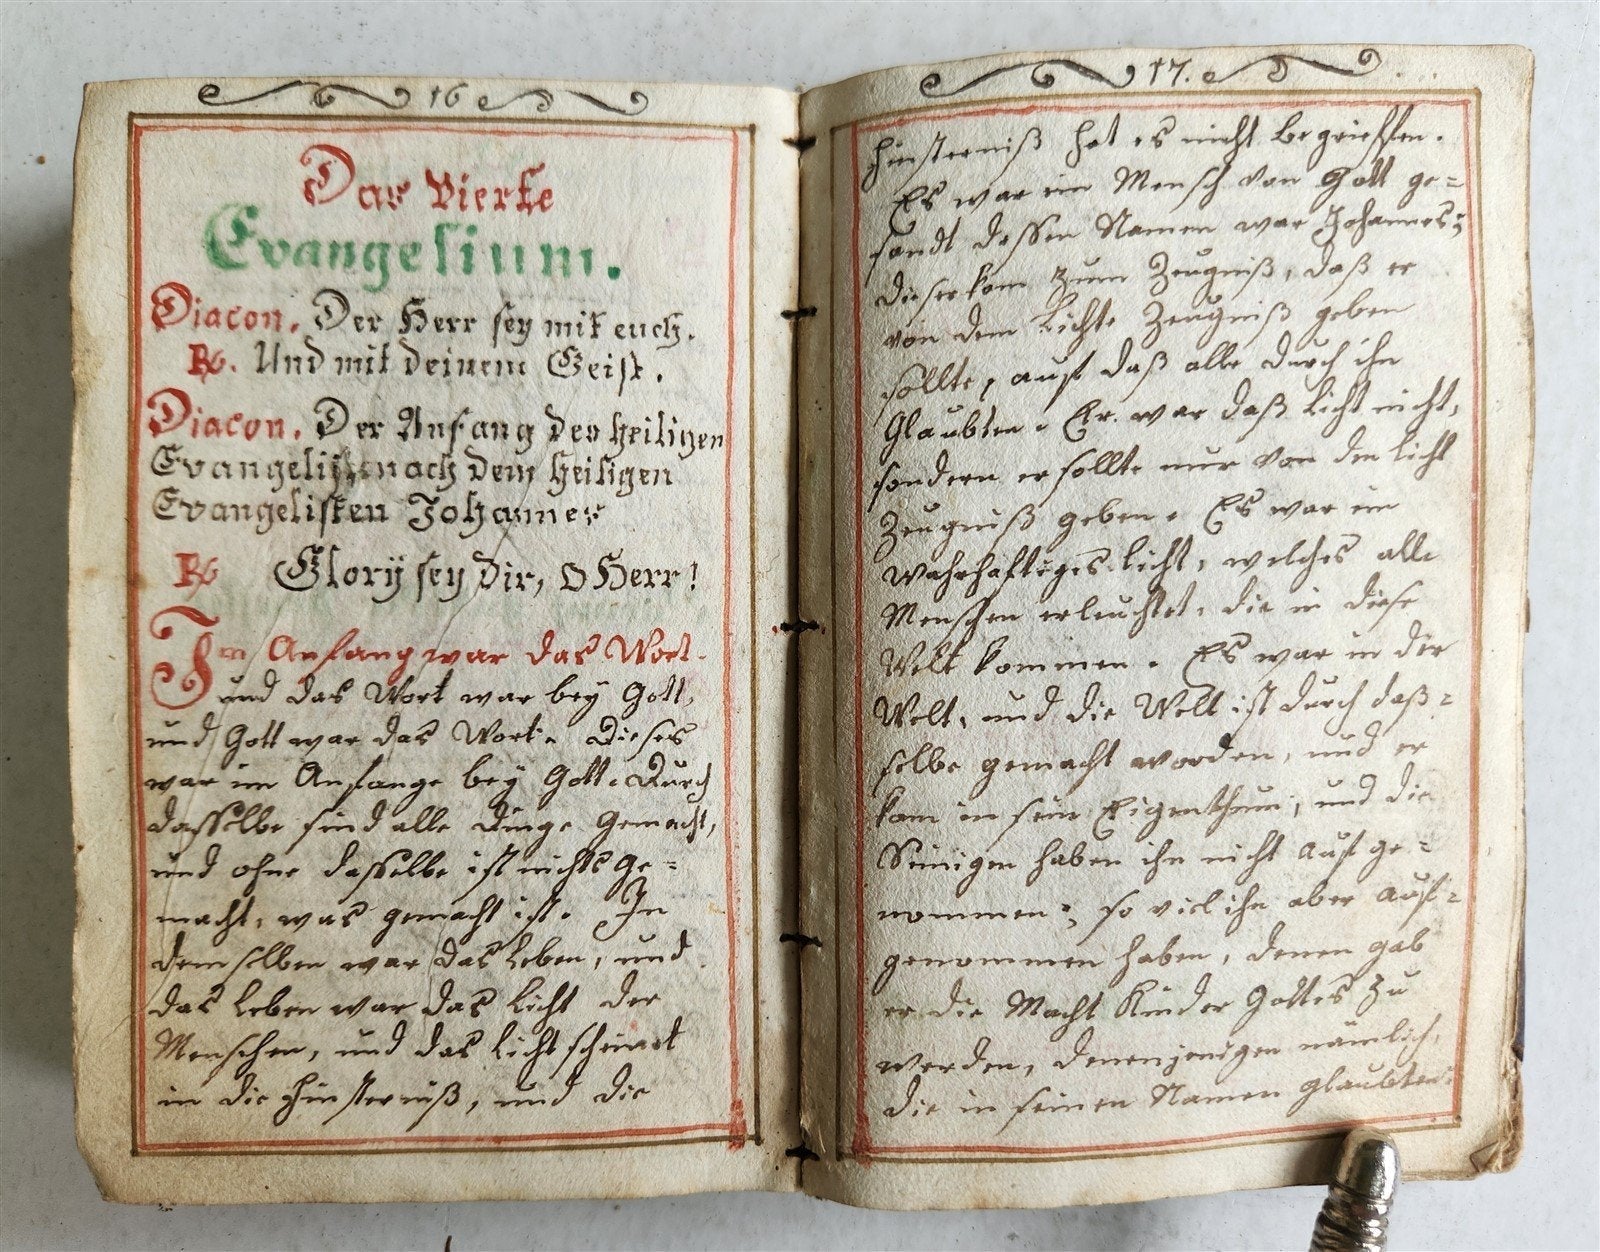 16
Das Vierte
Evangelium.
Diacon. Der Herr sey mit euch.
R. Und mit deinem Geist.
Diacon. Der Anfang des heiligen
Evangelij nach dem heiligen
Evangelisten Johannes
R Glorÿ sey dir, O Herr!
Im Anfang war das Wort.
und das Wort war beÿ Gott,
und Gott war das Wort. Dieses
war im Anfange beÿ Gott. Durch
dasselbe sind alle Dinge Gemacht,
und ohne dasselbe ist nichts ge=
macht, was gemacht ist. In
demselben war das Leben, und
das Leben war das Licht der
Menschen, und das Licht scheinet
in die Finsterniß, und die
17.
Finsterniß hat es nicht begrieffen.
Es war ein Mensch von Gott ge=
sandt dessen Namen war Johannes;
dieser kam zum Zeugniß, daß er
von dem Lichte Zeugniß geben
sollte, auf daß alle durch ihn
Glaubten. Er war daß Licht nicht,
sondern er sollte nur von den Licht
Zeugniß geben. Es war ein
wahrhaftiges Licht, welches alle
Menschen erleuchtet, die in diese
Welt kommen. Es war in der
Welt, und die Welt ist durch daß=
selbe gemacht worden, und er
kam in sein Eigenthum, und die
Seinigen haben ihn nicht auf ge=
nommen; so viel ihn aber auf=
genommen haben, denen gab
er die Macht Kinder Gottes zu
werden, denenjenigen nämlich,
die in seinen Namen glaubten